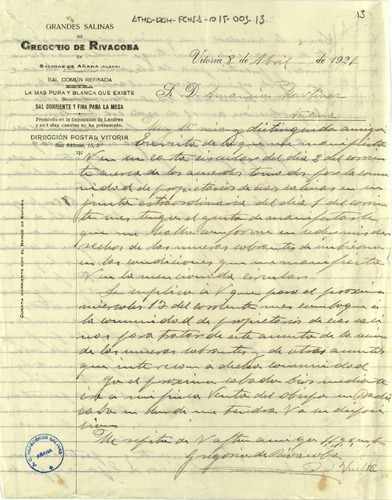 ATHA-DAH-FCHSA-015-003-13
13
GRANDES SALINAS
DE
GREGORIO DE RIVACOBA
EN
SALINAS DE AÑANA (ALAVA)
SAL COMÚN REFINADA
EXTRA
LA MAS PURA Y BLANCA QUE EXISTE
DE
SAL CORRIENTE Y FINA PARA LA MESA
Premiada en la Exposición de Londres
y en todas cuantas se ha presentado.
DIRECCIÓN POSTAL: VITORIA
San Antonio, 15, 2.º
CUENTA CORRIENTE CON EL BANCO DE ESPAÑA
Vitoria 8 de Abril de 1921
S. D. Amancio Martinez
Añana
Muy Sr. mio y distinguido amigo
Enterado de lo que me manifiesta
V. en su carta circular del dia 2 del corrien
te acerca de los acuerdos tomados por la comu
nidad de propietarios de esas salinas en
junta extraordinaria del dia 1 del corrien
te mes tengo el gusto de manifestarle
que me hallo conforme en
de las mueras sobrantes de
en las condiciones que me manifiesta
V. en la mencionada circular.
Se suplica á que para el proximo
miercoles 13 del corriente mes
la comunidad de propietarios de esas sali
nas para tratar de este asunto de la
de las mueras sobrantes y de otros asuntos
que interesan a dicha comunidad
Yo el proximo sabado
a mi finca Venta del
en donde me tendra V. a su disposi
cion.
Me repito de V. affmo amigo
Gregorio de Rivacoba
Vuelta
A. C. HEREDEROS SALINAS
AÑANA